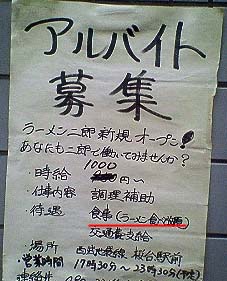 アルバイト
募集
ラーメン二郎 新規オープン!
あなたも二郎で働いてみませんか?
1000
・時給 円〜
・仕事内容 調理補助
・待遇 食事(ラーメン食べ放題)
交通費支給
・場所 西武池袋線 桜台駅前
・営業時間 17時30分〜23時30分(予定)